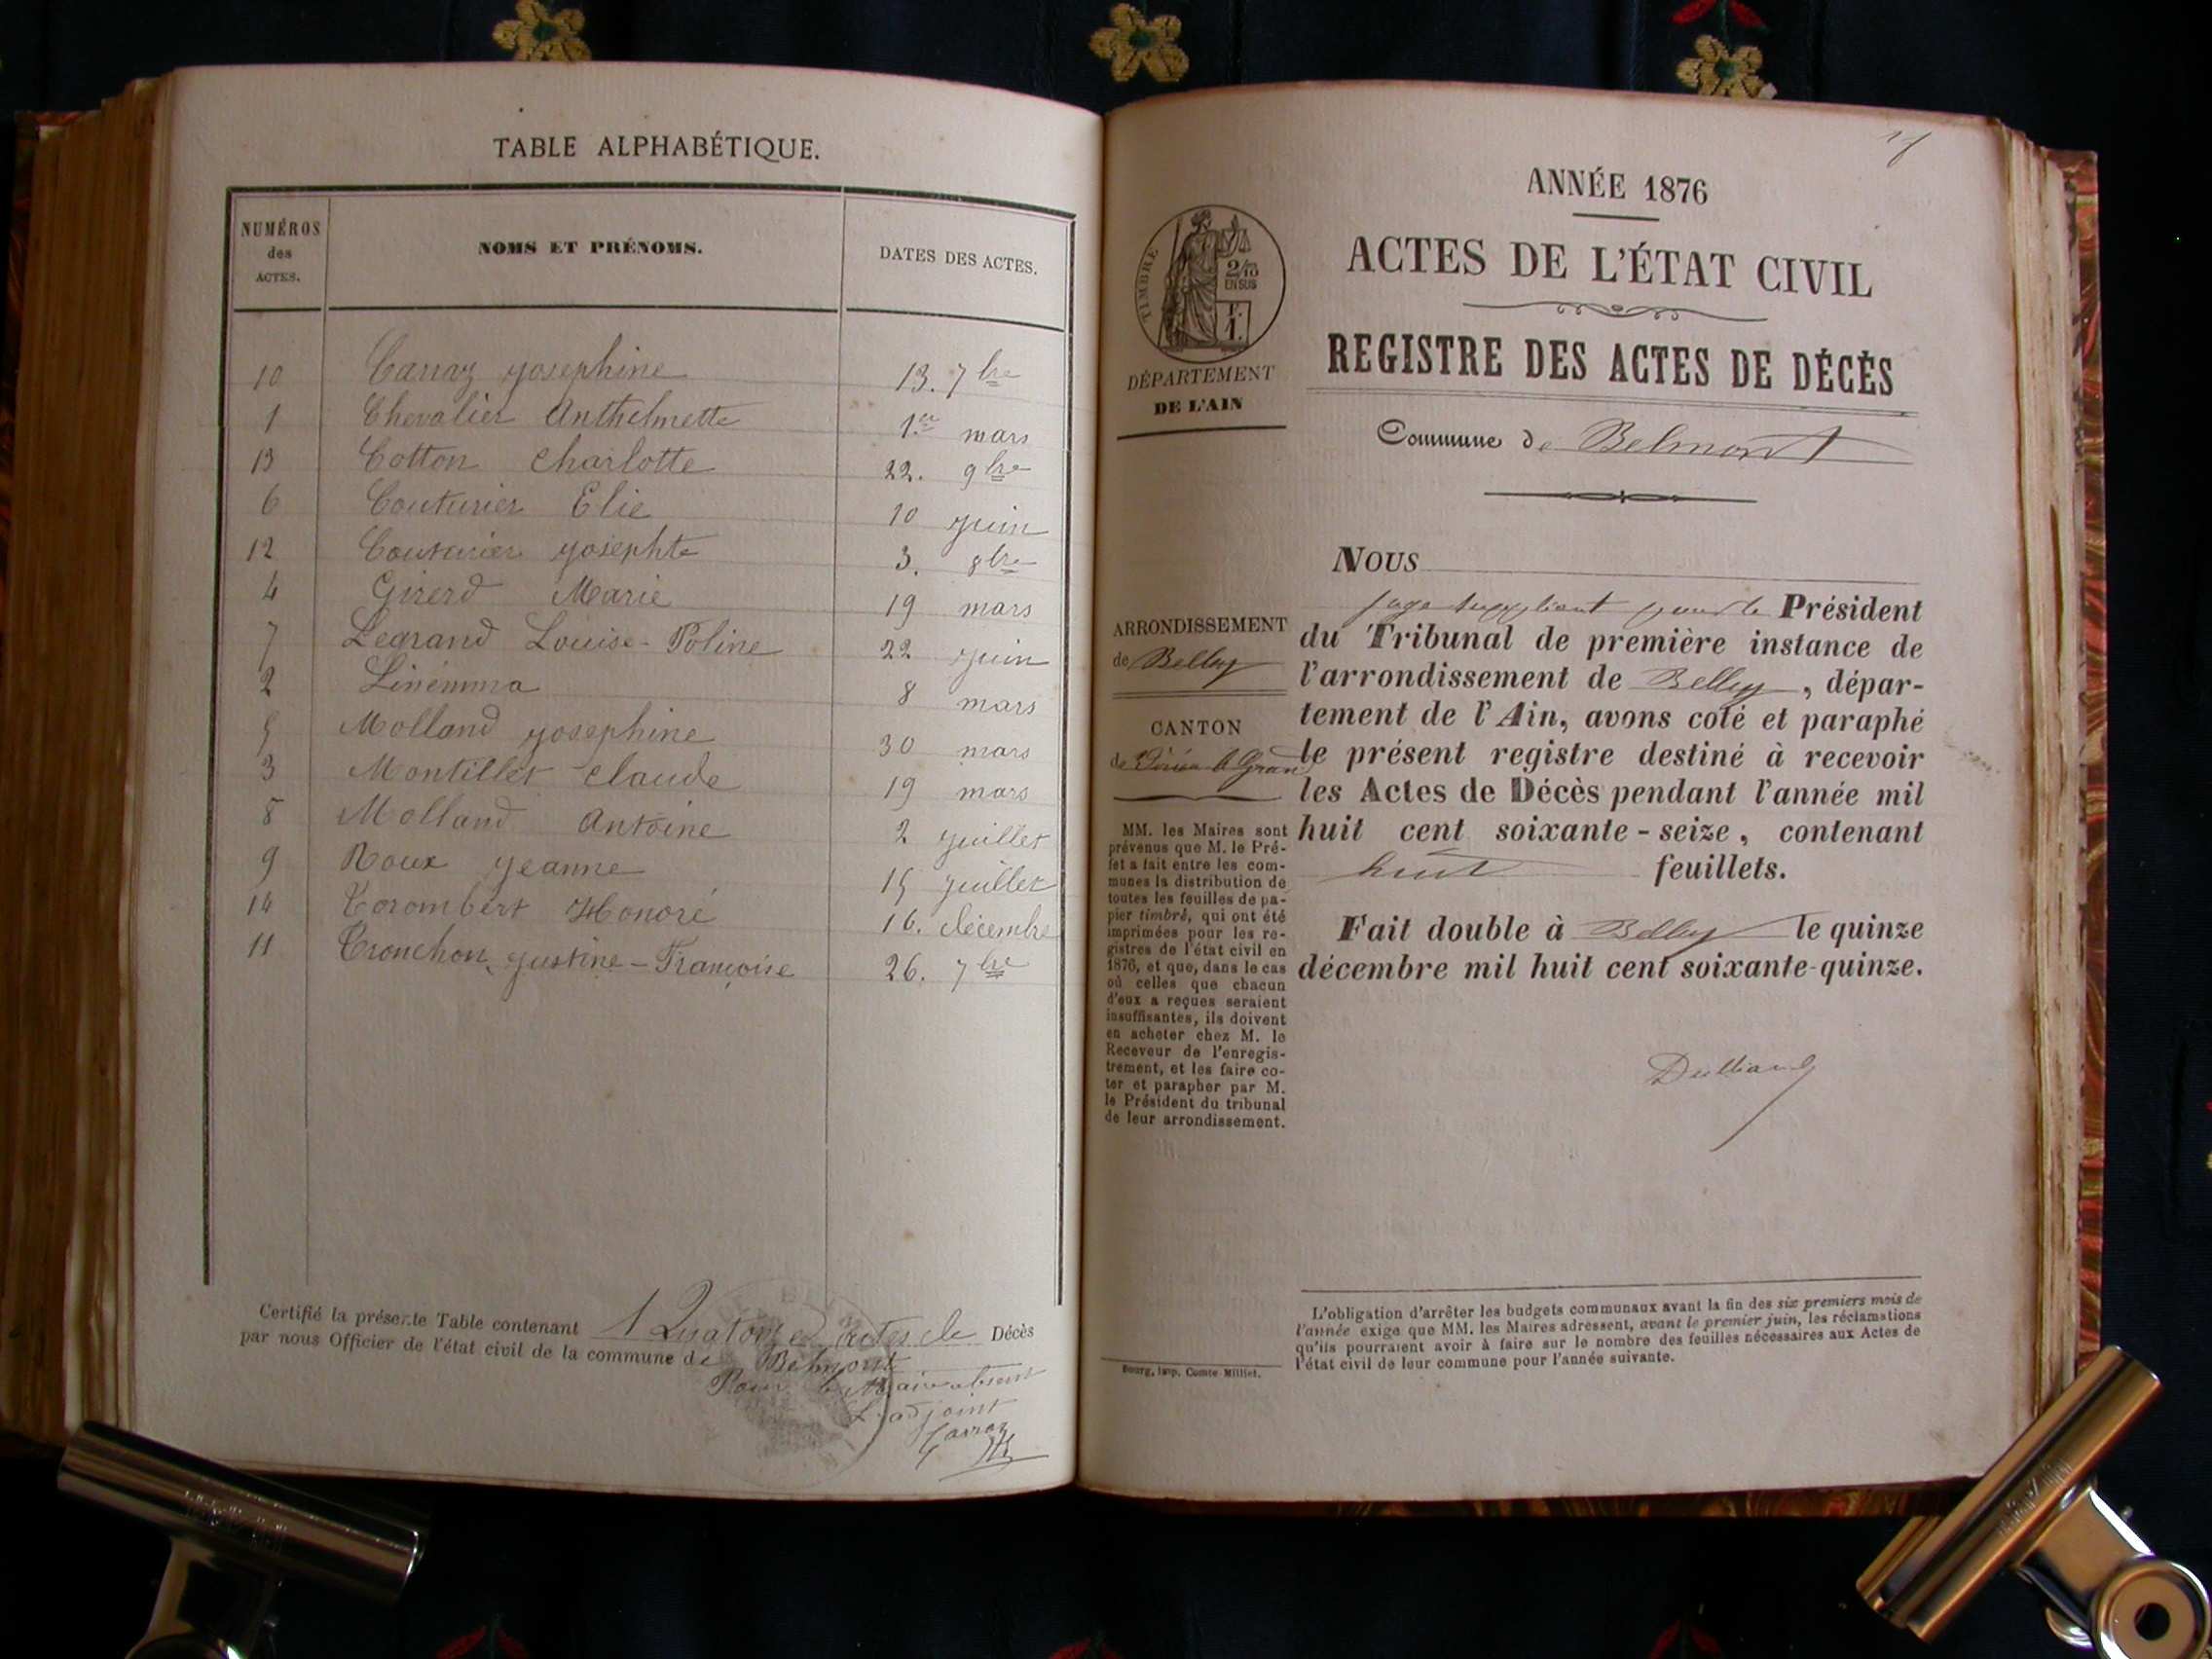 TABLE ALPHABÉTIQUE.
NUMÉROS
des
ACTES.
NOMS ET PRÉNOMS.
DATES DES ACTES.
10 Carraz Josephine 13. 7bre
1 Chevalier Anthelmette 1er mars
13 Cotton Charlotte 22. 9bre
6 Couturier Elie 10 juin
12 Couturier Josephte 3. 8bre
4 Girerd Marie 19 mars
7 Legrand Louise-Poline 22 juin
2 Linemma 8 mars
5 Molland Josephine 30 mars
3 Montillet Claude 19 mars
8 Molland Antoine 2 juillet
9 Roux Jeanne 15 juillet
14 Torombert Honoré 16. décembre
11 Tronchon Justine-Françoise 26. 7bre
Certifié la présente Table contenant Quatorze actes de Décès
par nous Officier de l'état civil de la commune de Belmont
Pour le Maire absent
L'adjoint
Carraz
ANNÉE 1876
ACTES DE L'ÉTAT CIVIL
REGISTRE DES ACTES DE DÉCÈS
Commune de Belmont
TIMBRE
2/10
EN SUS
F.
1.
DÉPARTEMENT
DE L'AIN
ARRONDISSEMENT
de Belley
CANTON
de Virieu le Grand
MM. les Maires sont
prévenus que M. le Pré-
fet a fait entre les com-
munes la distribution de
toutes les feuilles de pa-
pier timbré, qui ont été
imprimées pour les re-
gistres de l'état civil en
1876, et que, dans le cas
où celles que chacun
d'eux a reçues seraient
insuffisantes, ils doivent
en acheter chez M. le
Receveur de l'enregis-
trement, et les faire co-
ter et parapher par M.
le Président du tribunal
de leur arrondissement.
NOUS
juge suppléant pour le Président
du Tribunal de première instance de
l'arrondissement de Belley, dépar-
tement de l'Ain, avons coté et paraphé
le présent registre destiné à recevoir
les Actes de Décès pendant l'année mil
huit cent soixante-seize, contenant
huit feuillets.
Fait double à Belley le quinze
décembre mil huit cent soixante-quinze.
L'obligation d'arrêter les budgets communaux avant la fin des six premiers mois de
l'année exige que MM. les Maires adressent, avant le premier juin, les réclamations
qu'ils pourraient avoir à faire sur le nombre des feuilles nécessaires aux Actes de
l'état civil de leur commune pour l'année suivante.
Bourg, imp. Comte-Milliet.